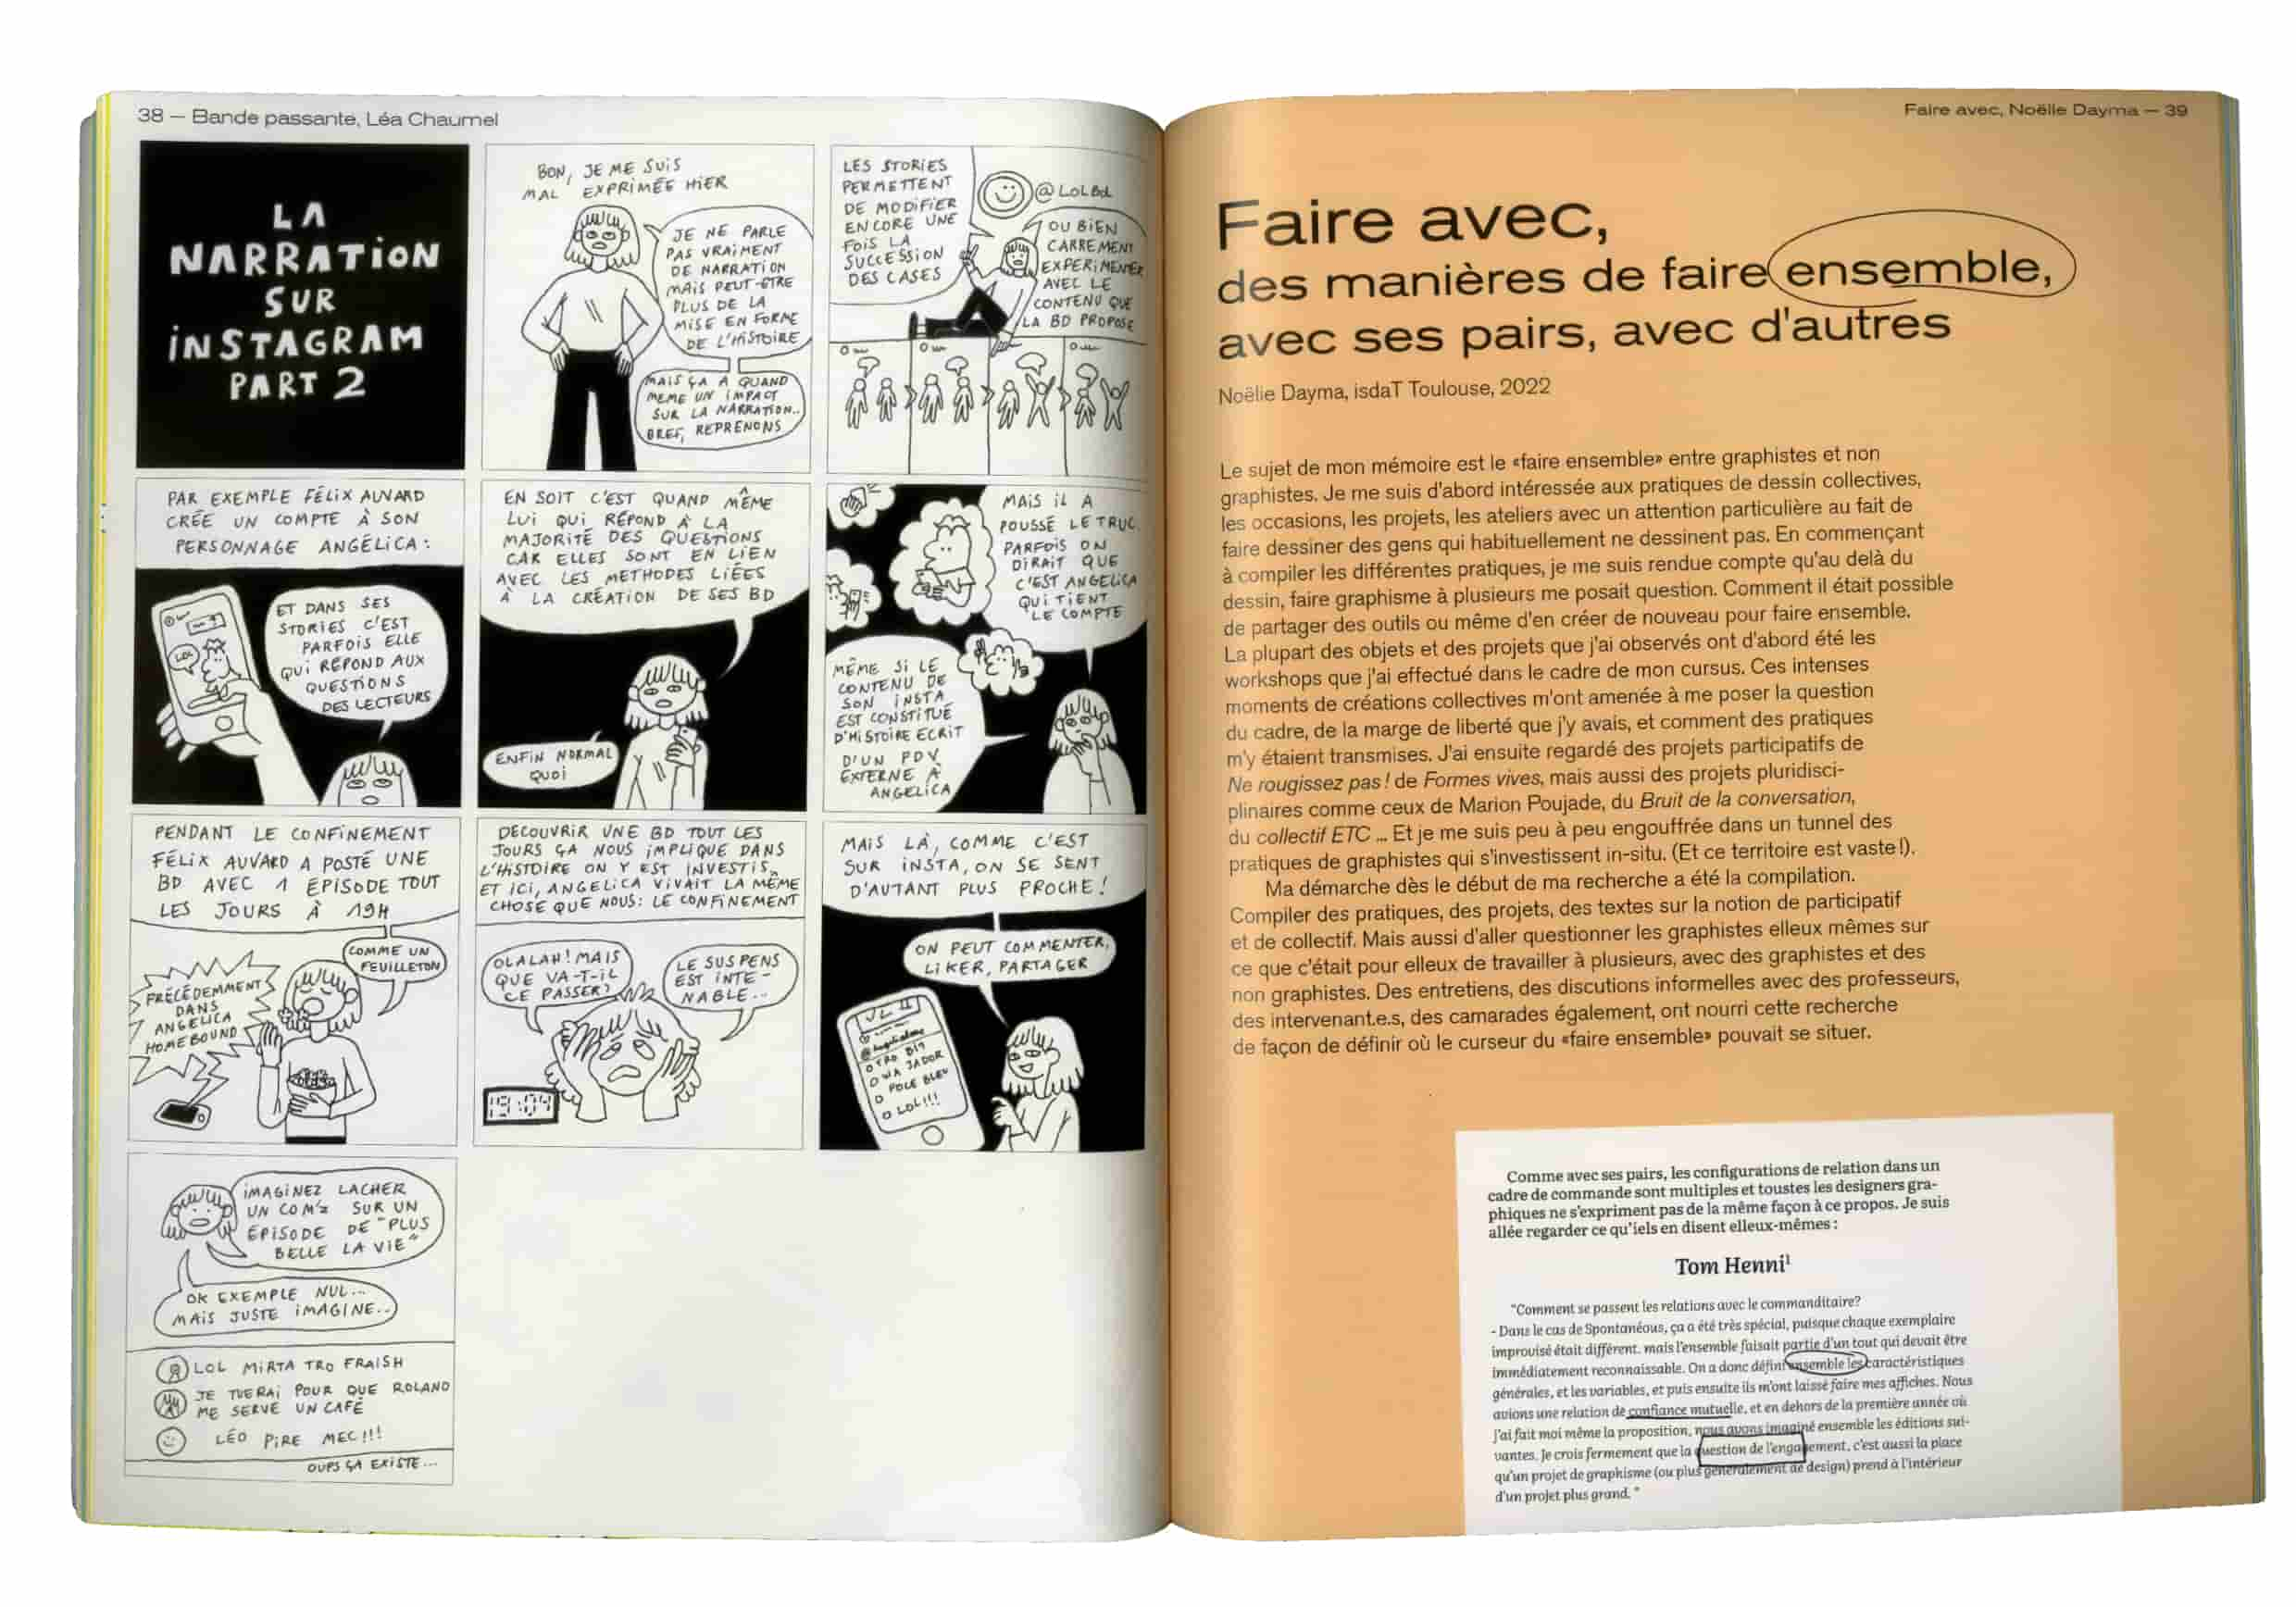 38 — Bande passante, Léa Chaumel
LA
NARRATION
SUR
iNSTAGRAM
PART 2
BON, JE ME SUiS
MAL EXPRiMÉE HiER
JE NE PARLE
PAS VRAiMENT
DE NARRATiON
MAiS PEUT-ÊTRE
PLUS DE LA
MiSE EN FORME
DE L'HiSTOiRE
MAiS ÇA A QUAND
MEME UN iMPACT
SUR LA NARRATION..
BREF, REPRENONS
LES STORiES
PERMETTENT
DE MODiFiER
ENCORE UNE
FOiS LA
SUCCESSiON
DES CASES
@LOLBd
OU BiEN
CARREMENT
EXPERiMENTER
AVEC LE
CONTENU QUE
LA BD PROPOSE
PAR EXEMPLE FÉLiX AUVARD
CRÉE UN COMPTE À SON
PERSONNAGE ANGÉLiCA :
LOL
ET DANS SES
STORiES C'EST
PARFOiS ELLE
QUi RÉPOND AUX
QUESTiONS
DES LECTEURS
EN SOiT C'EST QUAND MÊME
LUi QUi RÉPOND À LA
MAJORiTÉ DES QUESTiONS
CAR ELLES SONT EN LiEN
AVEC LES METHODES LiÉES
À LA CRÉATiON DE SES BD
ENFiN NORMAL
QUOi
MAiS iL A
POUSSÉ LE TRUC.
PARFOiS ON
DiRAiT QUE
C'EST ANGELiCA
QUi TiENT
LE COMPTE
MÊME Si LE
CONTENU DE
SON iNSTA
EST CONSTiTUÉ
D'HiSTOiRE ECRiT
D'UN PDV
EXTERNE À
ANGELiCA
PENDANT LE CONFiNEMENT
FÉLiX AUVARD A POSTÉ UNE
BD AVEC 1 ÉPiSODE TOUT
LES JOURS À 19H
COMME UN
FEUiLLETON
PRÉCÉDEMMENT
DANS
ANGELiCA
HOMEBOUND
DECOUVRiR UNE BD TOUT LES
JOURS ÇA NOUS iMPLiQUE DANS
L'HiSTOiRE ON Y EST iNVESTiS,
ET iCi, ANGELiCA ViVAiT LA MÊME
CHOSE QUE NOUS: LE CONFiNEMENT
OLALAH! MAiS
QUE VA-T-iL
CE PASSER?
LE SUSPENS
EST iNTE-
NABLE...
19:04
MAiS LÀ, COMME C'EST
SUR iNSTA, ON SE SENT
D'AUTANT PLUS PROCHE!
ON PEUT COMMENTER,
LiKER, PARTAGER
TRO BI1
WA JADOR
POCE BLEU
LOL!!!
iMAGiNEZ LACHER
UN COM'z SUR UN
ÉPiSODE DE "PLUS
BELLE LA ViE"
OK EXEMPLE NUL...
MAiS JUSTE iMAGiNE...
LOL MiRTA TRO FRAiSH
JE TUERAi POUR QUE ROLAND
ME SERVE UN CAFÉ
LÉO PiRE MEC!!!
OUPS ÇA EXiSTE...
Faire avec, Noëlie Dayma — 39
Faire avec,
des manières de faire ensemble,
avec ses pairs, avec d'autres
Noëlie Dayma, isdaT Toulouse, 2022
Le sujet de mon mémoire est le «faire ensemble» entre graphistes et non
graphistes. Je me suis d'abord intéressée aux pratiques de dessin collectives,
les occasions, les projets, les ateliers avec un attention particulière au fait de
faire dessiner des gens qui habituellement ne dessinent pas. En commençant
à compiler les différentes pratiques, je me suis rendue compte qu'au delà du
dessin, faire graphisme à plusieurs me posait question. Comment il était possible
de partager des outils ou même d'en créer de nouveau pour faire ensemble.
La plupart des objets et des projets que j'ai observés ont d'abord été les
workshops que j'ai effectué dans le cadre de mon cursus. Ces intenses
moments de créations collectives m'ont amenée à me poser la question
du cadre, de la marge de liberté que j'y avais, et comment des pratiques
m'y étaient transmises. J'ai ensuite regardé des projets participatifs de
Ne rougissez pas ! de Formes vives, mais aussi des projets pluridisci-
plinaires comme ceux de Marion Poujade, du Bruit de la conversation,
du collectif ETC ... Et je me suis peu à peu engouffrée dans un tunnel des
pratiques de graphistes qui s'investissent in-situ. (Et ce territoire est vaste !).
Ma démarche dès le début de ma recherche a été la compilation.
Compiler des pratiques, des projets, des textes sur la notion de participatif
et de collectif. Mais aussi d'aller questionner les graphistes elleux mêmes sur
ce que c'était pour elleux de travailler à plusieurs, avec des graphistes et des
non graphistes. Des entretiens, des discutions informelles avec des professeurs,
des intervenant.e.s, des camarades également, ont nourri cette recherche
de façon de définir où le curseur du «faire ensemble» pouvait se situer.
Comme avec ses pairs, les configurations de relation dans un
cadre de commande sont multiples et toustes les designers gra-
phiques ne s'expriment pas de la même façon à ce propos. Je suis
allée regarder ce qu'iels en disent elleux-mêmes :
Tom Henni¹
"Comment se passent les relations avec le commanditaire?
- Dans le cas de Spontanéous, ça a été très spécial, puisque chaque exemplaire
improvisé était différent. mais l'ensemble faisait partie d'un tout qui devait être
immédiatement reconnaissable. On a donc défini ensemble les caractéristiques
générales, et les variables, et puis ensuite ils m'ont laissé faire mes affiches. Nous
avions une relation de confiance mutuelle, et en dehors de la première année où
j'ai fait moi même la proposition, nous avons imaginé ensemble les éditions sui-
vantes. Je crois fermement que la question de l'engagement, c'est aussi la place
qu'un projet de graphisme (ou plus généralement de design) prend à l'intérieur
d'un projet plus grand. "